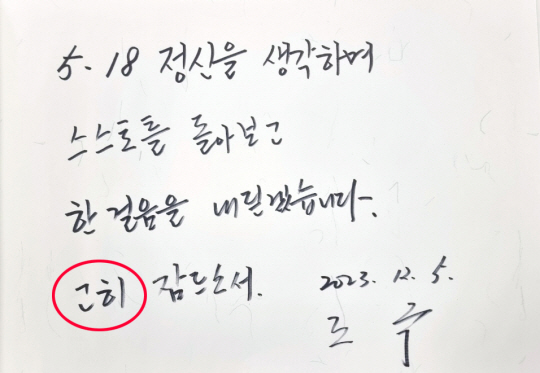 5·18 정신을 생각하며
스스로를 돌아보고
한 걸음을 내딛겠습니다.
고히 잠드소서.
2023. 12. 5.
조 국